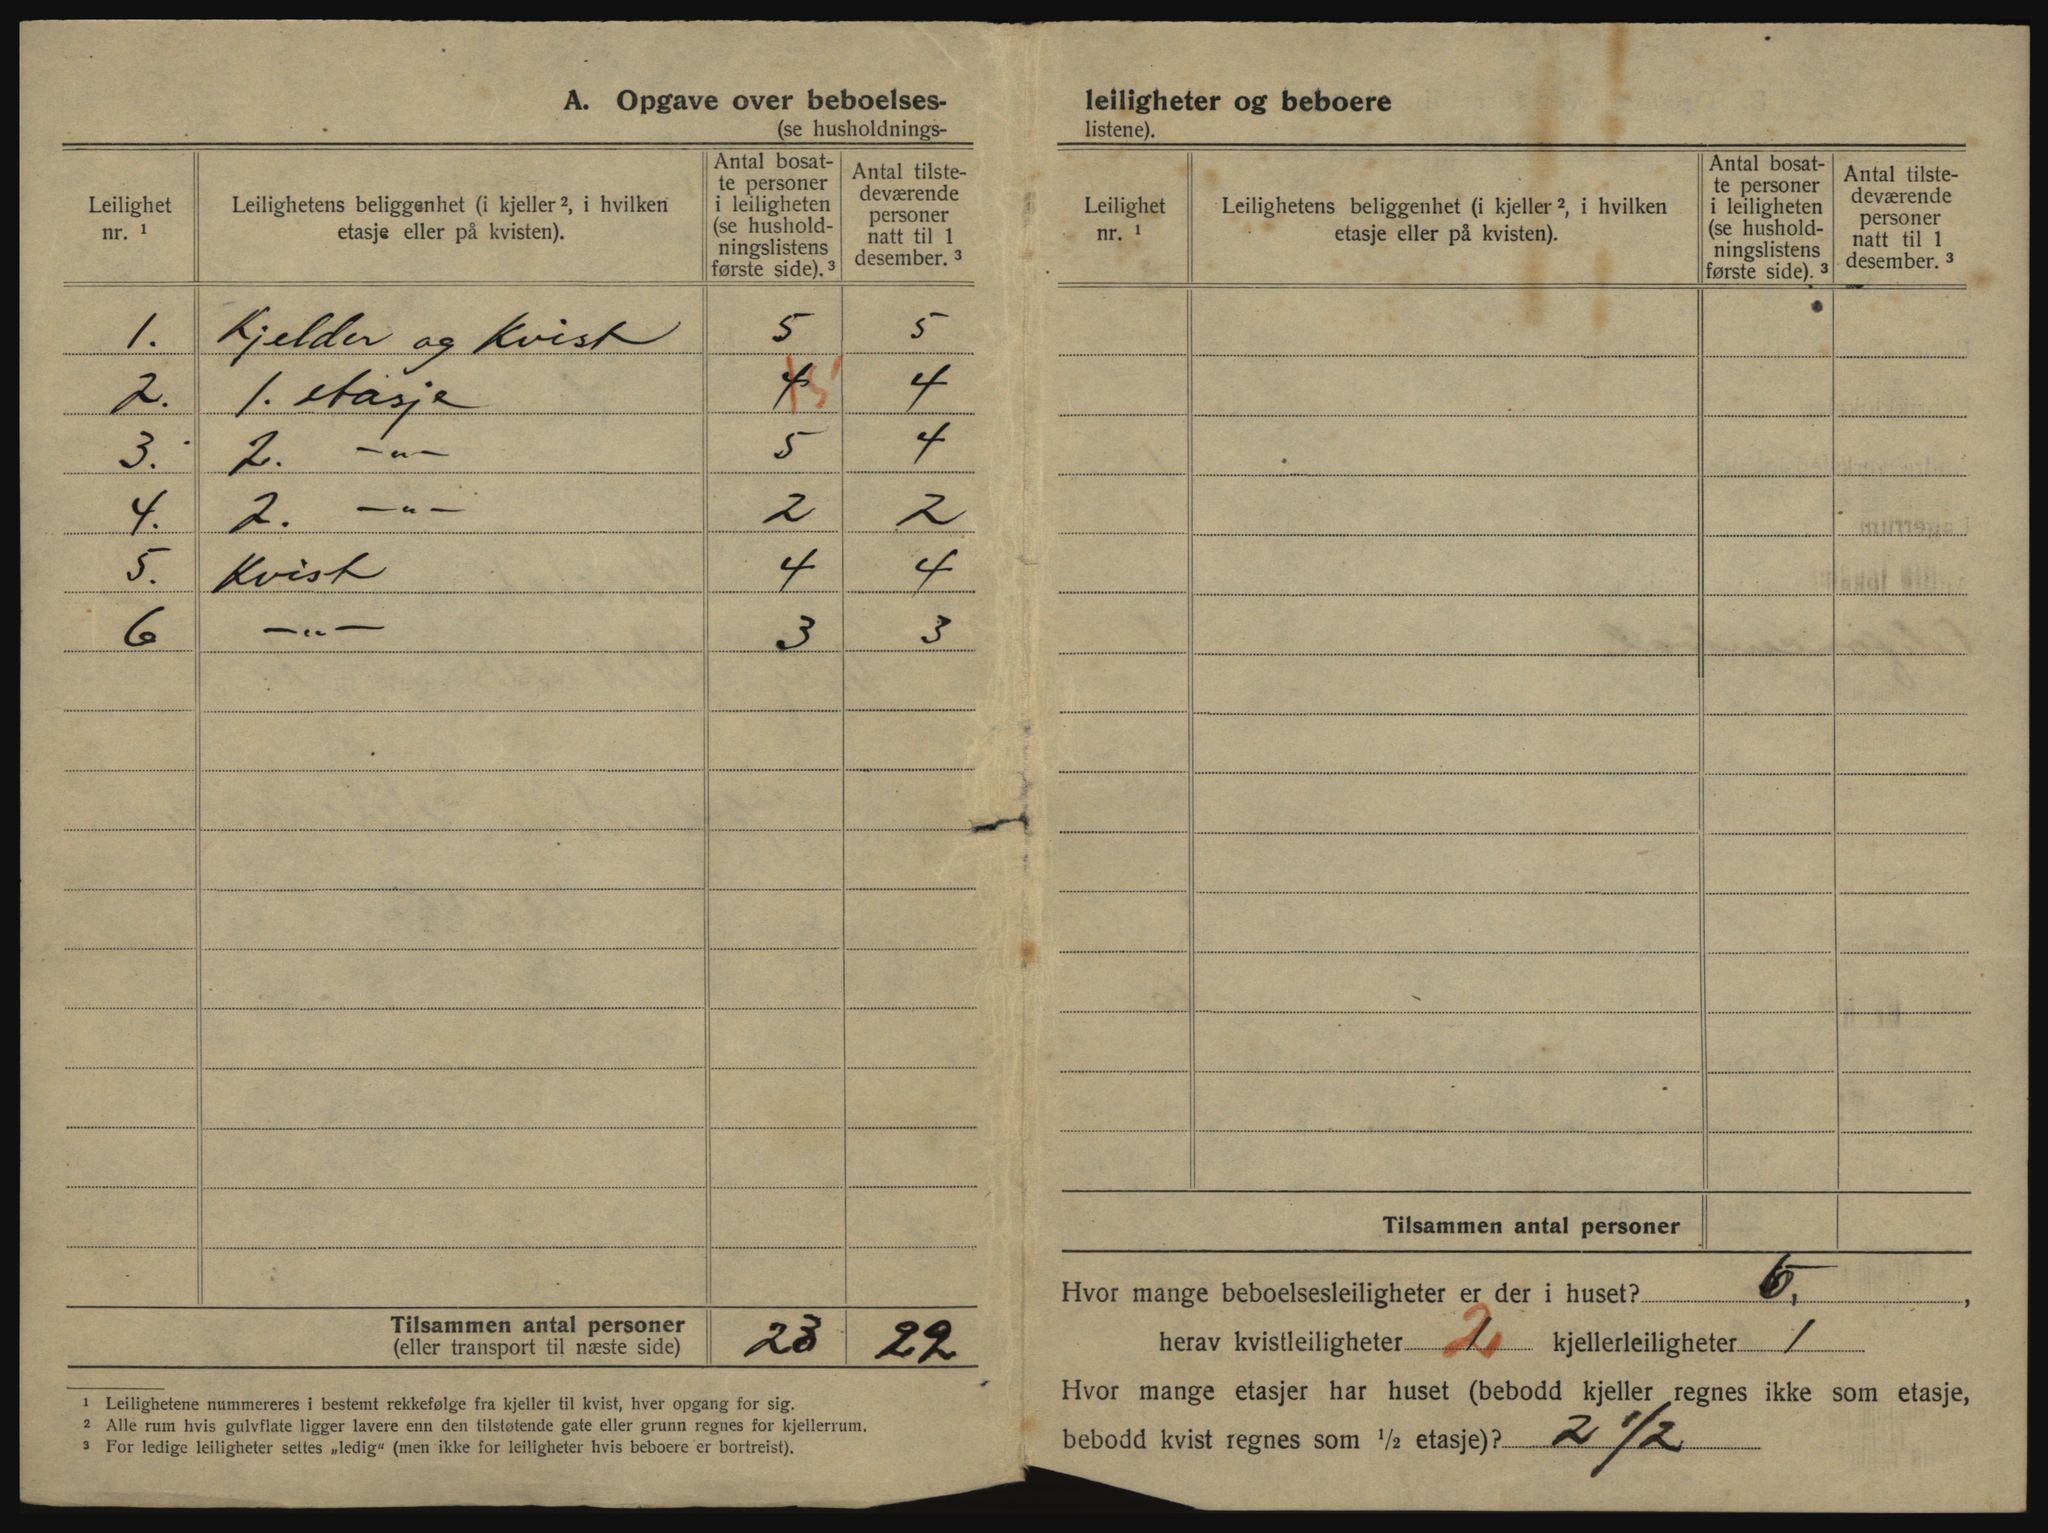 A. Opgave over beboelses-
(se husholdnings-
Leilighet nr. ¹
Leilighetens beliggenhet (i kjeller ², i hvilken etasje eller på kvisten).
Antal bosat-
te personer
i leiligheten
(se hushold-
ningslistens
første side). ³
Antal tilste-
deværende
personer
natt til 1
desember. ³
1. Kjelder og Kvist 5 5
2. 1. etasje 4 5 4
3. 2. —"— 5 4
4. 2. —"— 2 2
5. Kvist 4 4
6 —"— 3 3
Tilsammen antal personer 23 22
(eller transport til næste side)
¹ Leilighetene nummereres i bestemt rekkefølge fra kjeller til kvist, hver opgang for sig.
² Alle rum hvis gulvflate ligger lavere enn den tilstøtende gate eller grunn regnes for kjellerrum.
³ For ledige leiligheter settes „ledig“ (men ikke for leiligheter hvis beboere er bortreist).
leiligheter og beboere
listene).
Leilighet nr. ¹
Leilighetens beliggenhet (i kjeller ², i hvilken etasje eller på kvisten).
Antal bosat-
te personer
i leiligheten
(se hushold-
ningslistens
første side). ³
Antal tilste-
deværende
personer
natt til 1
desember. ³
Tilsammen antal personer
Hvor mange beboelsesleiligheter er der i huset? 6.,
herav kvistleiligheter 1 2 kjellerleiligheter 1
Hvor mange etasjer har huset (bebodd kjeller regnes ikke som etasje,
bebodd kvist regnes som ½ etasje)? 2 1/2